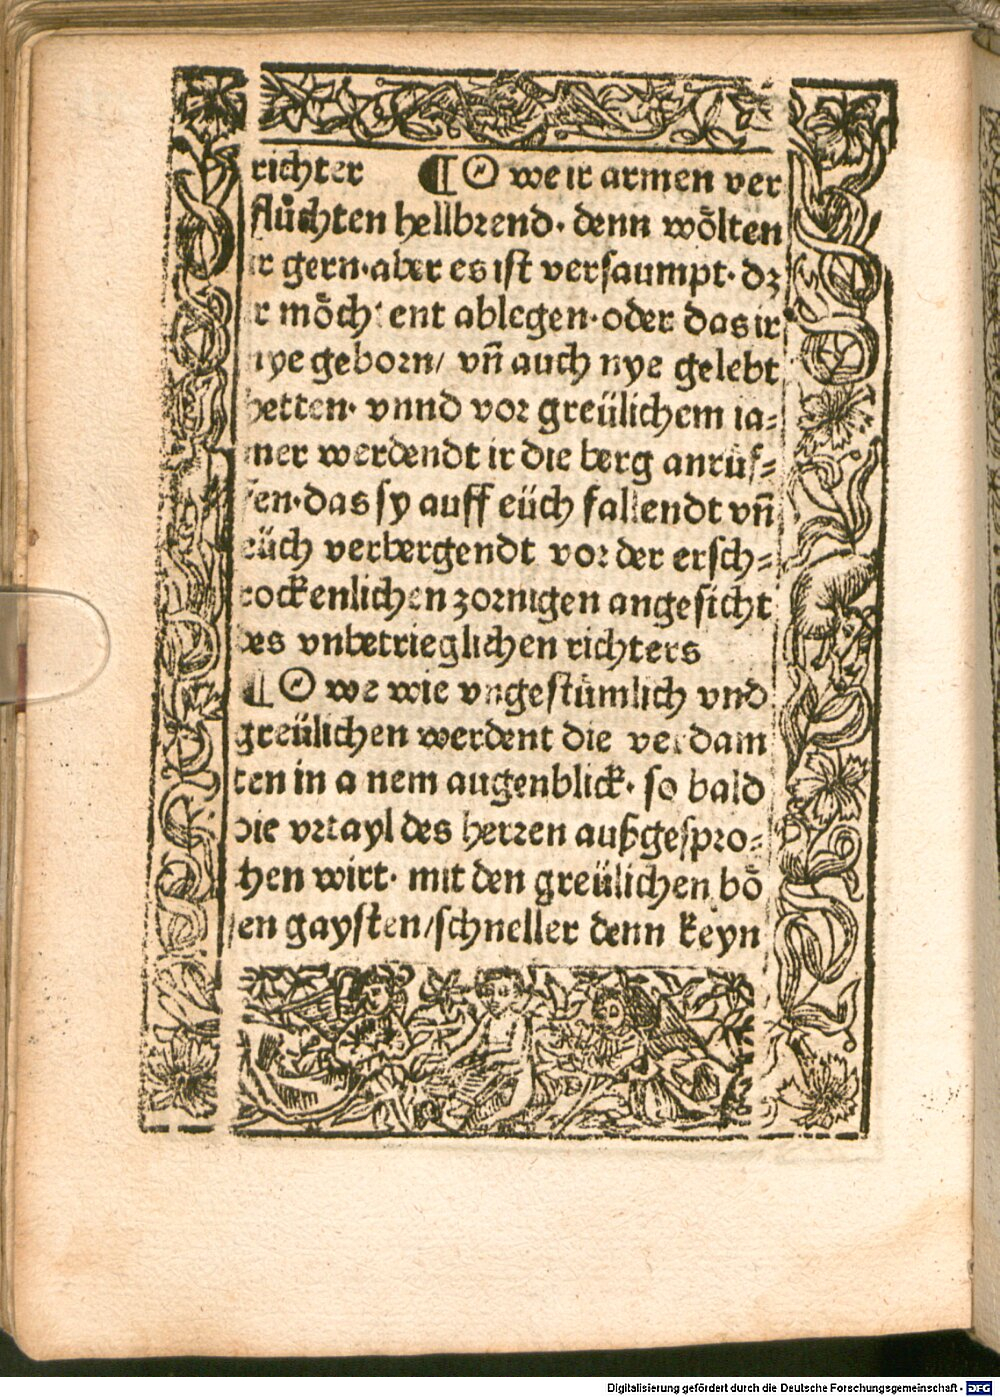 richter ¶ O we ir armen ver
flůchten hellbrend. denn wo᷑lten
ir gern. aber es ist versaumpt. dz
ir möchtent ablegen. oder das ir
nye geborn/ vn̄ auch nye gelebt
hetten. vnnd vor greülichem ia⸗
mer werdendt ir die berg anrůf⸗
fen. das sy auff eüch fallendt vn̄
eüch verbergendt vor der ersch⸗
rockenlichen zornigen angesicht
des vnbetrieglichen richters
¶ O we wie vngestümlich vnd
greülichen werdent die verdam
ten in a nem augenblick. so bald
die vrtayl des herren außgespro⸗
chen wirt. mit den greülichen bö
sen gaysten/ schneller denn keyn
Digitalisierung gefördert durch die Deutsche Forschungsgemeinschaft - DFG